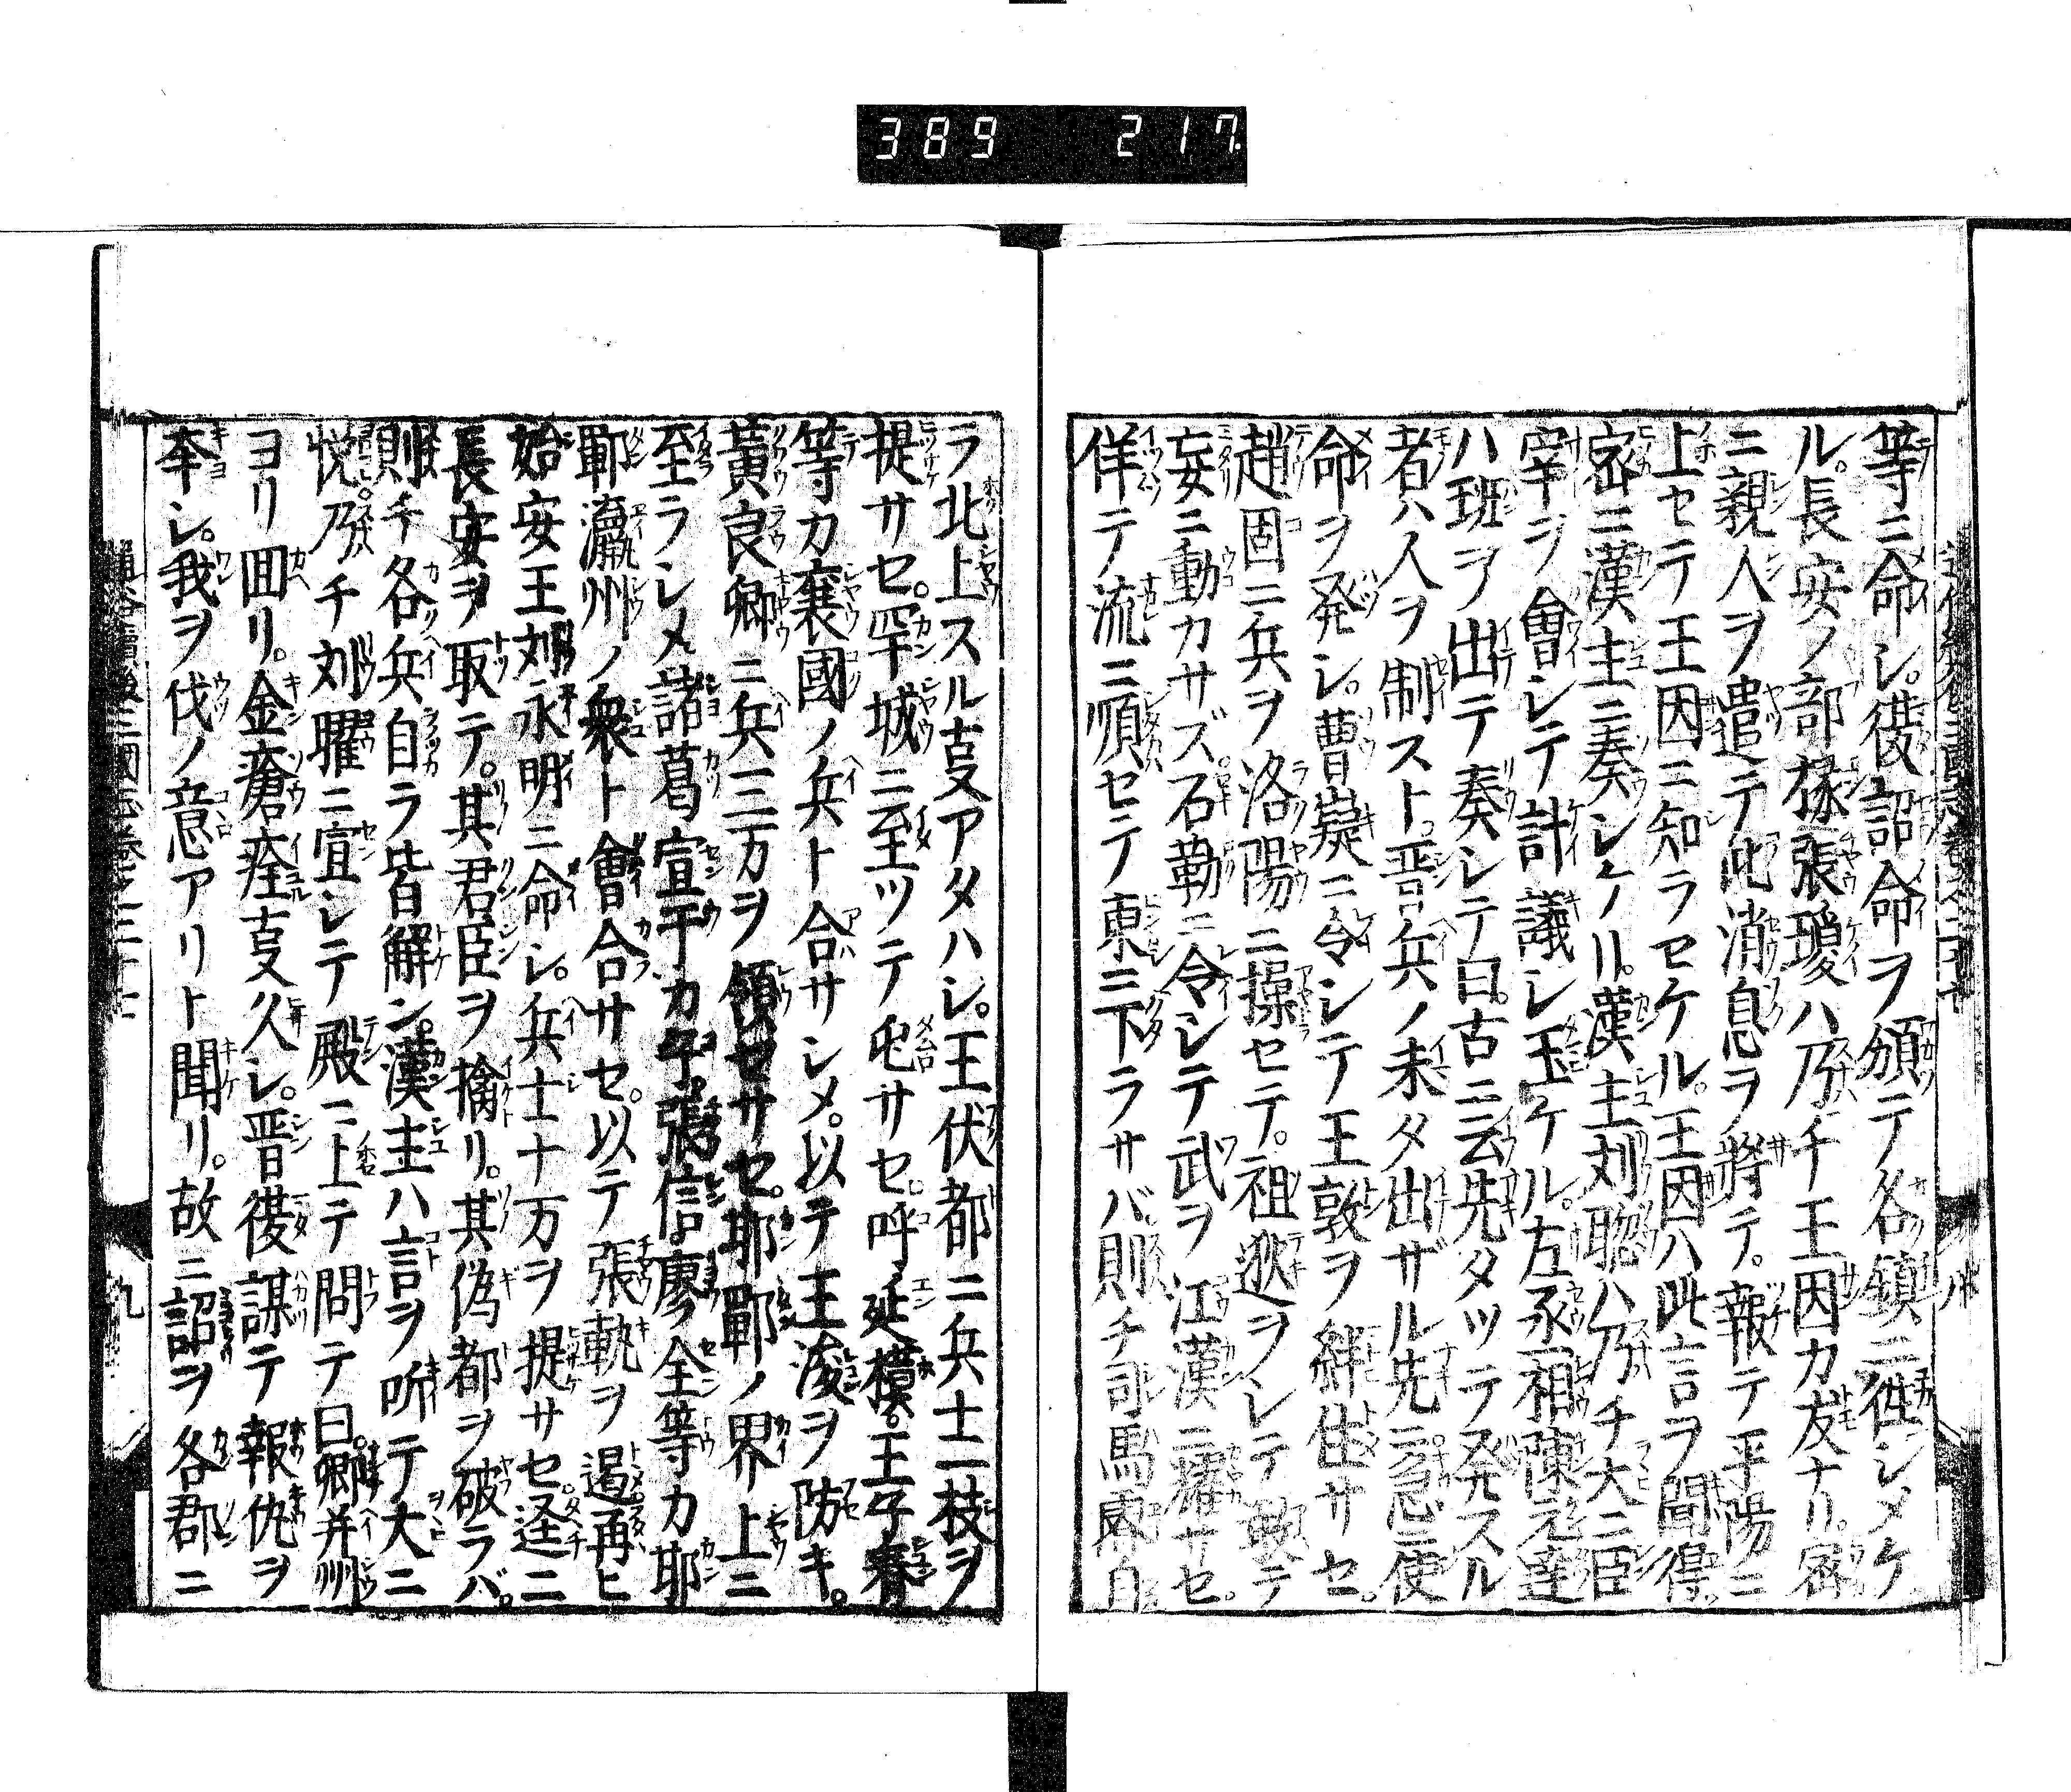 389 217
等ニ命シ。復詔命ヲ頒テ各鎮ニ徃シメケ
ル。長安ノ部椽張瓊ハ乃チ王因カ友ナリ。密
ニ親人ヲ遣テ此消息ヲ將テ。報テ平陽ニ
上セテ王因ニ知ラセケル。王因ハ此言ヲ聞得。
密ニ漢主ニ奏シケリ。漢主刘聡ハ乃チ大ニ臣
宰ヲ會シテ計議シ玉ケル。左丞相陳元達
ハ班ヲ出テ奏シテ曰。古ニ云先タツテ発スル
者ハ人ヲ制スト。晋兵ノ未タ出ザル先ニ急ニ使
命ヲ発シ。曹嶷ニ令シテ王敦ヲ絆住サセ。
趙固ニ兵ヲ洛陽ニ操セテ。祖逖ヲシテ敢テ
妄ニ動カサズ。石勒ニ令シテ武ヲ江漢ニ耀サセ。
佯テ流ニ順セテ東ニ下ラサバ。則チ司馬睿自
ラ北上スル亊アタハシ。王伏都ニ兵士一枝ヲ
提サセ。罕城ニ至ツテ屯サセ。呼延模。王子春
等カ襄國ノ兵ト合サシメ。以テ王浚ヲ防キ。
黃良卿ニ兵三万ヲ領セサセ。邯鄲ノ界上ニ
至ラシメ諸葛宣于カ子。張信。廖全等カ邯
鄲瀛州ノ衆ト會合サセ。以テ張軌ヲ遏。再ヒ
始安王刘永明ニ命シ。兵士十万ヲ提サセ。逕ニ
長安ヲ取テ。其君臣ヲ擒リ。其偽都ヲ破ラバ。
則チ各兵自ラ皆解ン。漢主ハ言ヲ听テ大ニ
悦。乃チ刘曜ニ宣シテ殿ニ上テ問テ曰。卿并州
ヨリ囬リ。金瘡痊亊久シ。晋復謀テ報仇ヲ
夲シ。我ヲ伐ノ意アリト聞リ。故ニ詔ヲ各郡ニ
九